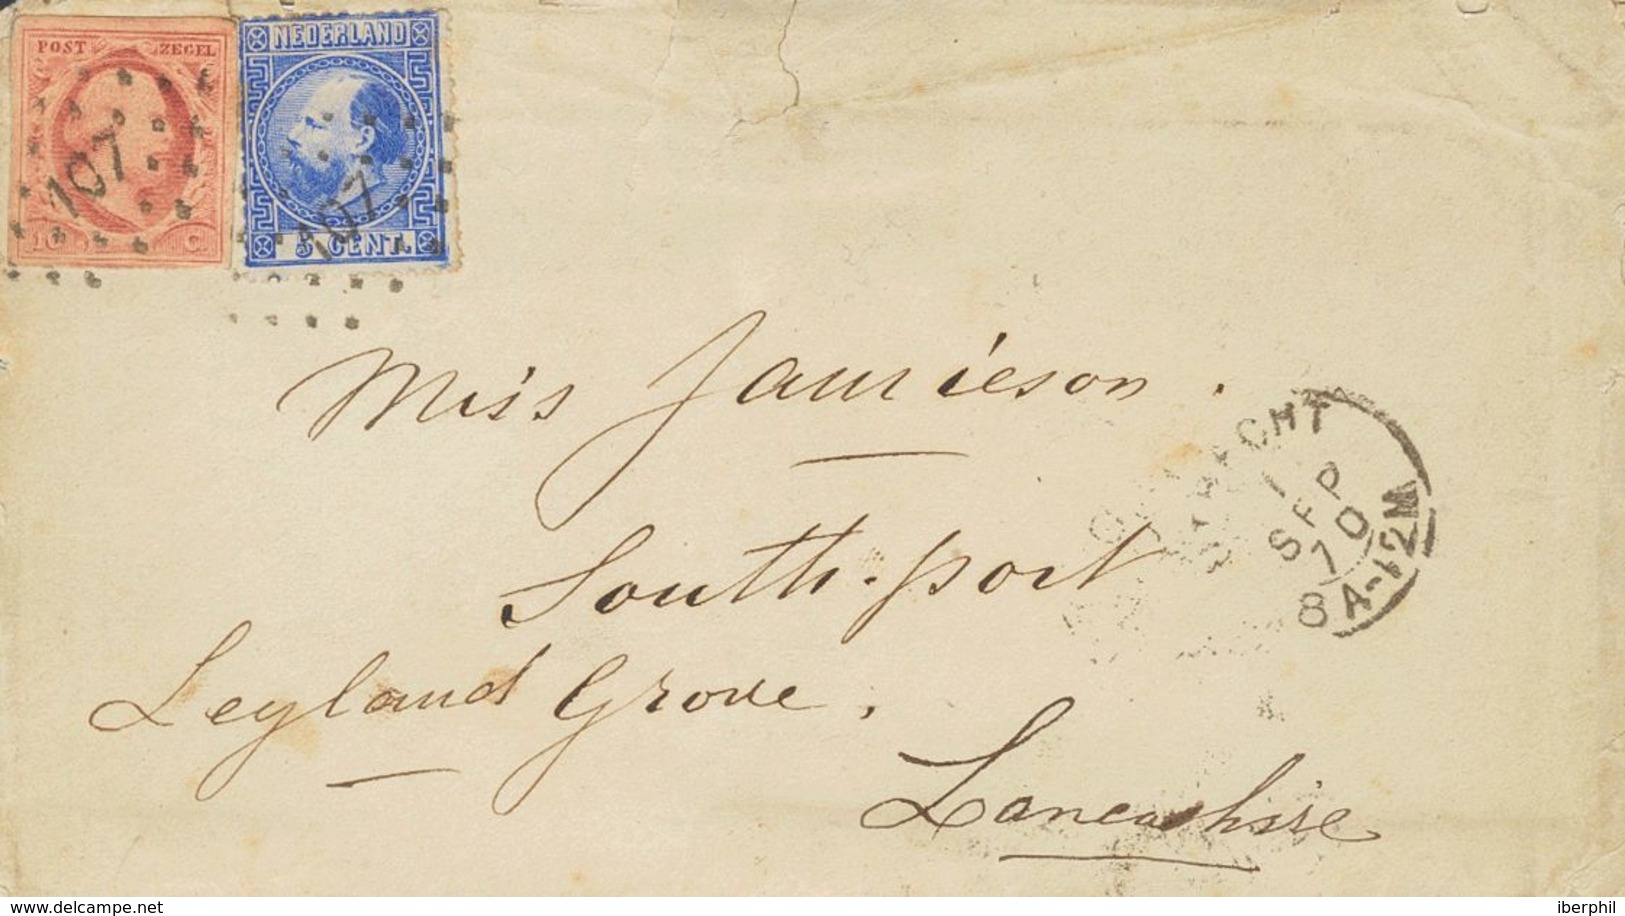 POST ZEGEL
10 C.
107
NEDERLAND
5 CENT.
107
Miss Jamieson.
South-port
Leyland Grove.
Lancashire
UTRECHT
1
SEP
70
8A-12M
delcampe.net
iberphil